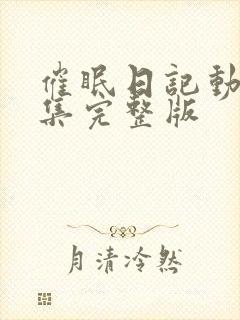 催眠日記動
集完整版
月清冷然